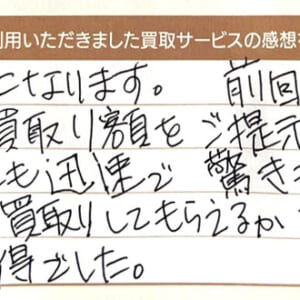 利用いただきました買取サービスの感想を
になります。 前回
買取り額をご提示
も迅速で 驚き
買取りしてもらえるか
得でした。